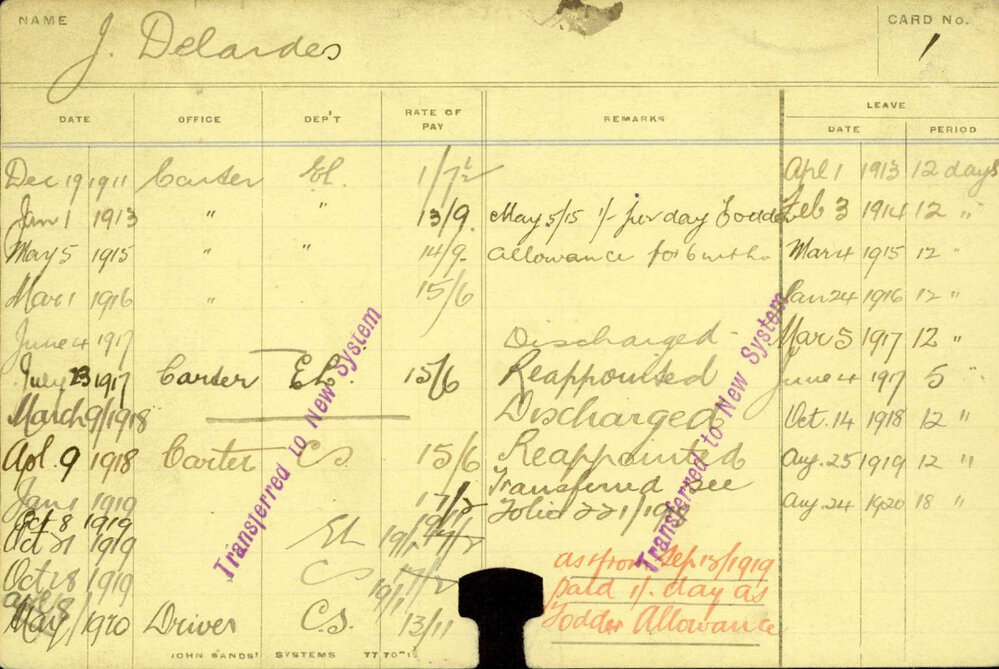 NAME J. Delardes CARD No. 1
LEAVE
DATE OFFICE DEP'T RATE OF PAY REMARKS DATE PERIOD
Dec 19 1911 Carter EL. 1/7½ Apl 1 1913 12 days
Jan 1 1913 " " 13/9. May 5/15 1/- per day Fodder Feb 3 1914 12 "
May 5 1915 " " 14/9. allowance for 6 mths. Mar 4 1915 12 "
Mar 1 1916 " 15/6 Jan 24 1916 12 "
June 4 1917 Discharged Mar 5 1917 12 "
July 23 1917 Carter EL. 15/6 Reappointed June 4 1917 5 "
March 9/1918 Discharged Oct. 14 1918 12 "
Apl. 9 1918 Carter CS. 15/6 Reappointed Aug. 25 1919 12 "
Jan 1 1919 17/2 Transferred See Aug. 24 1920 18 "
Oct 8 1919 19/1 Folio 221/19
Oct 21 1919 EL 19/1 17/2
Oct 28 1919 CS 17/2 as from Sep 18/1919
19/1 paid 1/- day as
May 1920 Driver C.S. 13/11 Fodder Allowance
Transferred to New System
Transferred to New System
JOHN SANDS' SYSTEMS 7770-12